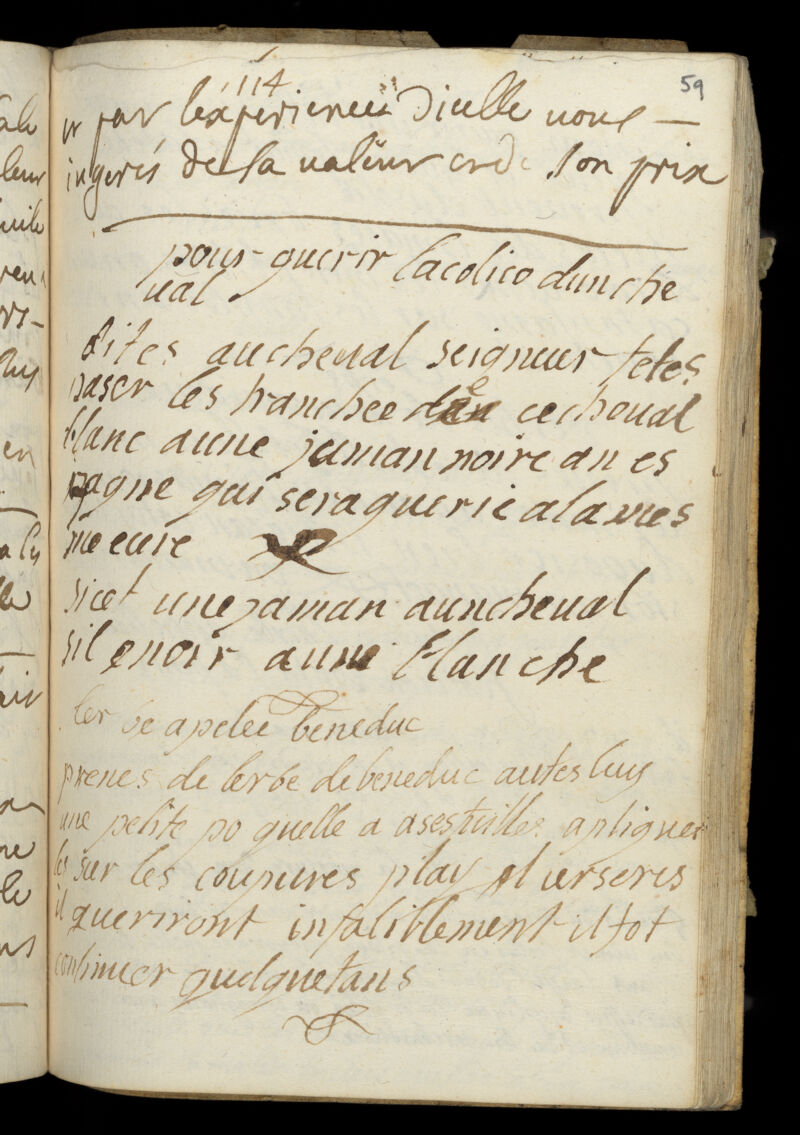 114
59
par lexperience dicelle vous
ingerés de sa valeur et de son prix
pour guerir lacolico dunche
ual
dites aucheual seigneur fetes
paser les tranchee de cecheual
blanc aune juman noire an es
pagne qui seraguerie alames
me eure
sicet une jaman auncheual
sil enoir aune blanche
ler be apelee beneduc
prenes de lerbe debeneduc autes luy
une petite po quelle a asesfuilles apliques
les sur les coupures play et urseres
il gueriront infaliblement il fot
continuer quelquetans